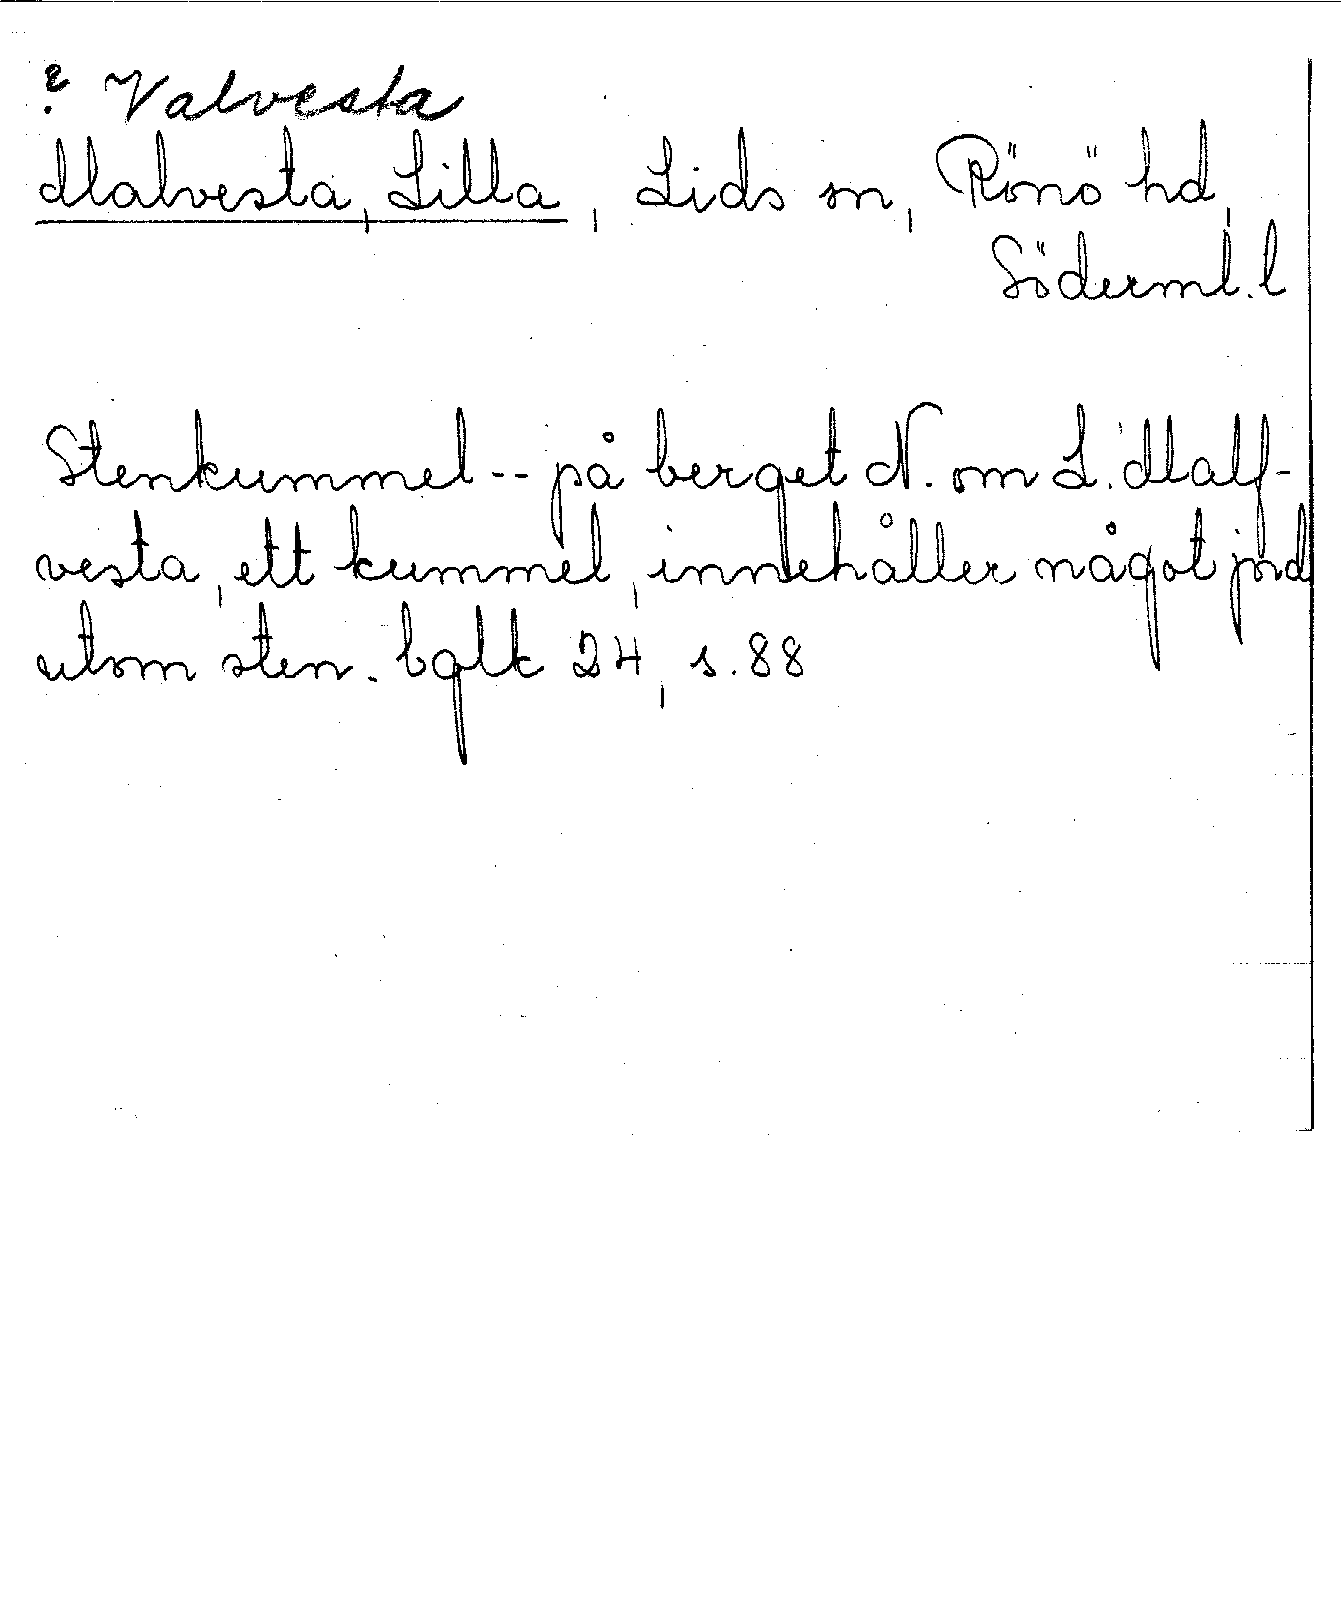 ? Valvesta
Malvesta, Lilla, Lids sn, Rönö hd,
Söderml. l
Stenkummel -- på berget N. om L. Malf-
vesta, ett kummel, innehåller något jord
utom sten. bglk 24, s. 88